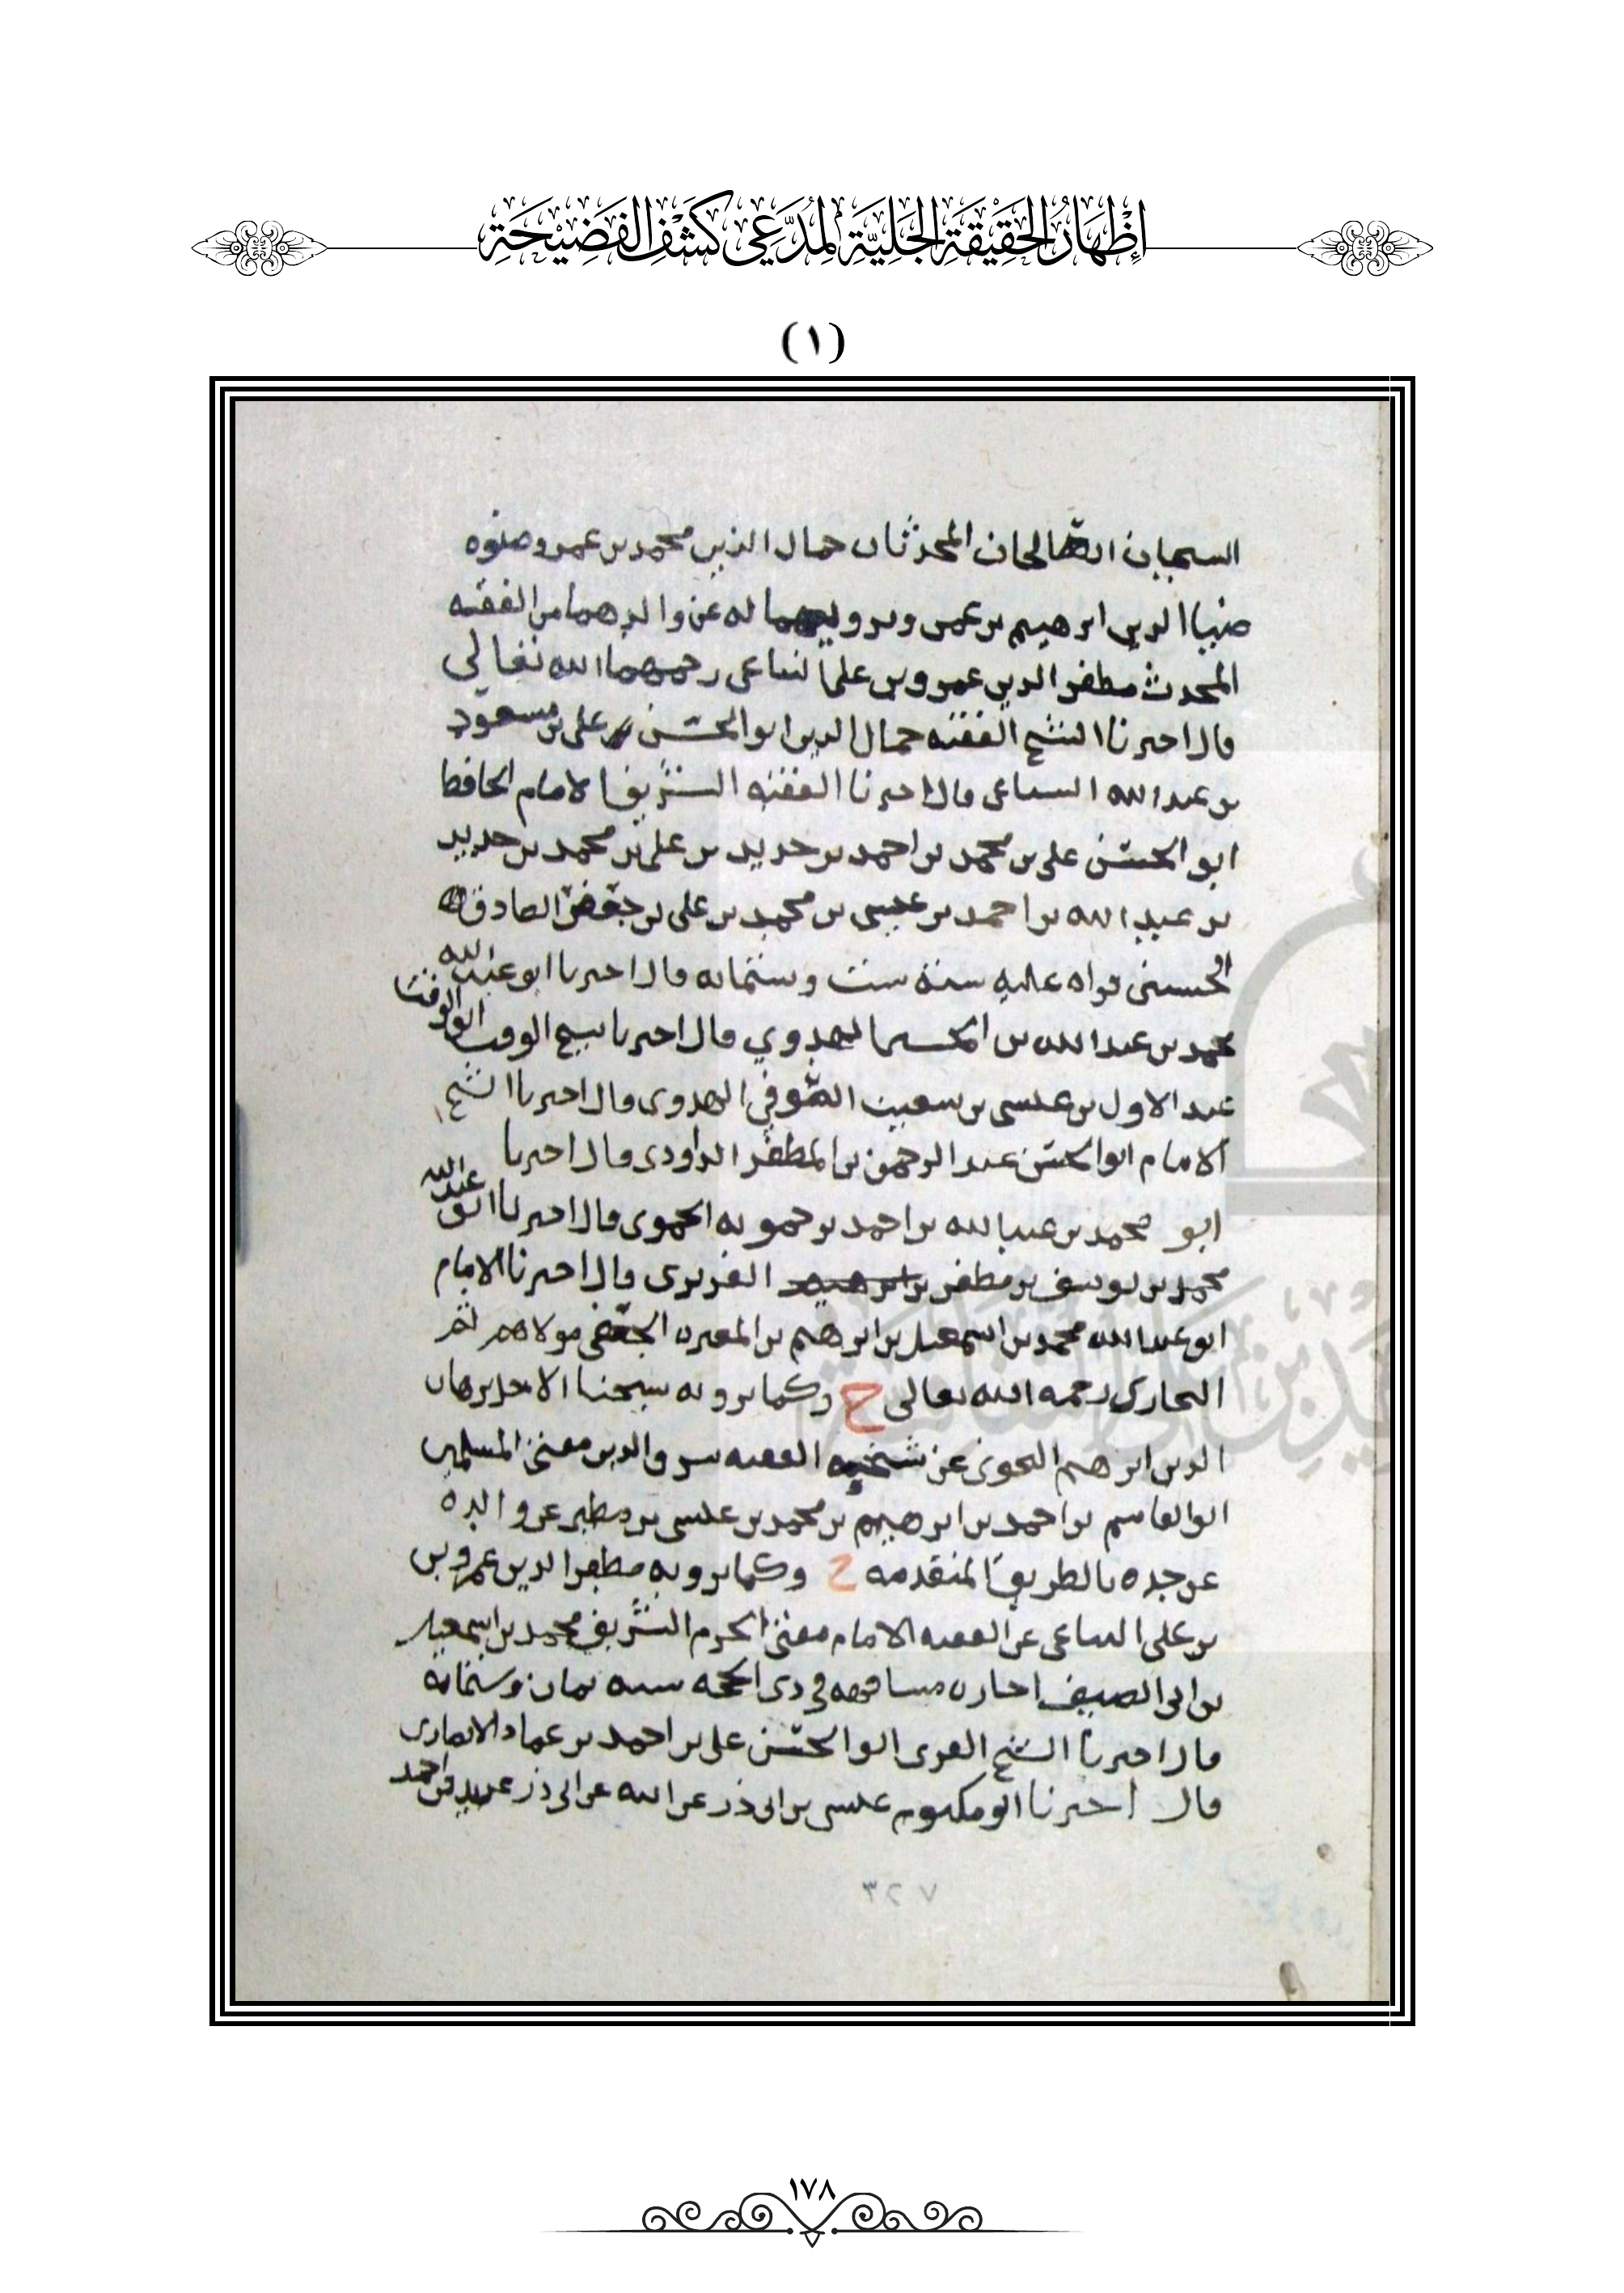 إِظْهَارُ الحَقِيقَةِ الجَلِيَّةِ لِمُدَّعِي كَشْفِ الفَضِيحَةِ
(١)
الصالحان المحدثان جمال الدين محمد بن عمر وصنوه
ضيا الدين ابرهيم بن عمر له عن والدهما من الفقيه
المحدث مظفر الدين عمرو بن علي رحمهما الله تعالى
قال اخبرنا الشيخ الفقيه جمال الدين ابو الحسن علي بن مسعود
بن عبد الله السباعي قال اخبرنا الفقيه الشريف الامام الحافظ
ابو الحسن علي بن محمد بن احمد بن حديد بن علي بن محمد بن حديد
بن عبد الله بن احمد بن عيسى بن محمد بن علي بن جعفر الصادق
الحسيني قراه عليه سنة ست وستمايه قال اخبرنا ابو عبد الله
محمد بن عبد الله بن الهروي قال اخبرنا شيخ الوقت ابو الوقت
عبد الاول بن عيسى بن شعيب الصوفي الهروي قال اخبرنا الشيخ
الامام ابو الحسن عبد الرحمن بن المظفر الداودي قال اخبرنا
ابو محمد بن عبد الله بن احمد بن حمويه الحموي قال اخبرنا ابو عبد الله
محمد بن يوسف بن مطفر الفربري قال اخبرنا الامام
ابو عبد الله محمد بن اسمعيل بن ابرهيم بن المغيره الجعفي مولاهم ثم
البخاري رحمه الله تعالى ح وكما يرويه شيخنا الاجل برهان
الدين ابرهيم النحوي عن شيخه الفقيه شرف الدين مفتي المسلمين
ابو القاسم بن احمد بن ابرهيم بن محمد بن عيسى بن مطير عن والده
عن جده بالطريق المتقدمه ح وكما يرويه مظفر الدين عمرو بن
بن علي التباعي عن الفقيه الامام مفتي الحرم الشريف محمد بن اسمعيل
بن ابي الصيف اجازه مشافهه في ذي الحجه سنه ثمان وستمايه
قال اخبرنا الشيخ المقري ابو الحسن علي بن احمد بن عمار الانصاري
قال اخبرنا ابو مكتوم عيسى بن ابي ذر عن ابيه عن ابي ذر عبد بن احمد
٣٢٧
١٧٨